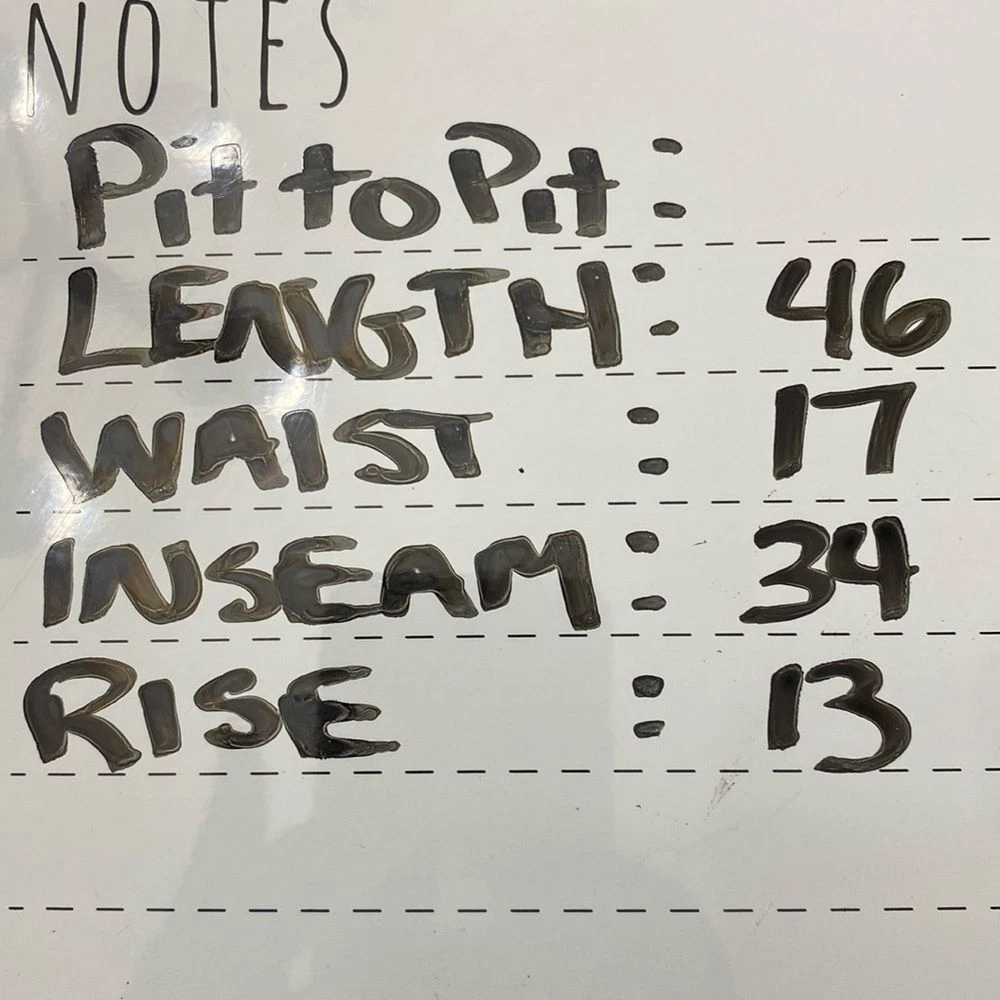 NOTES
Pit to Pit :
LENGTH : 46
WAIST : 17
INSEAM : 34
RISE : 13